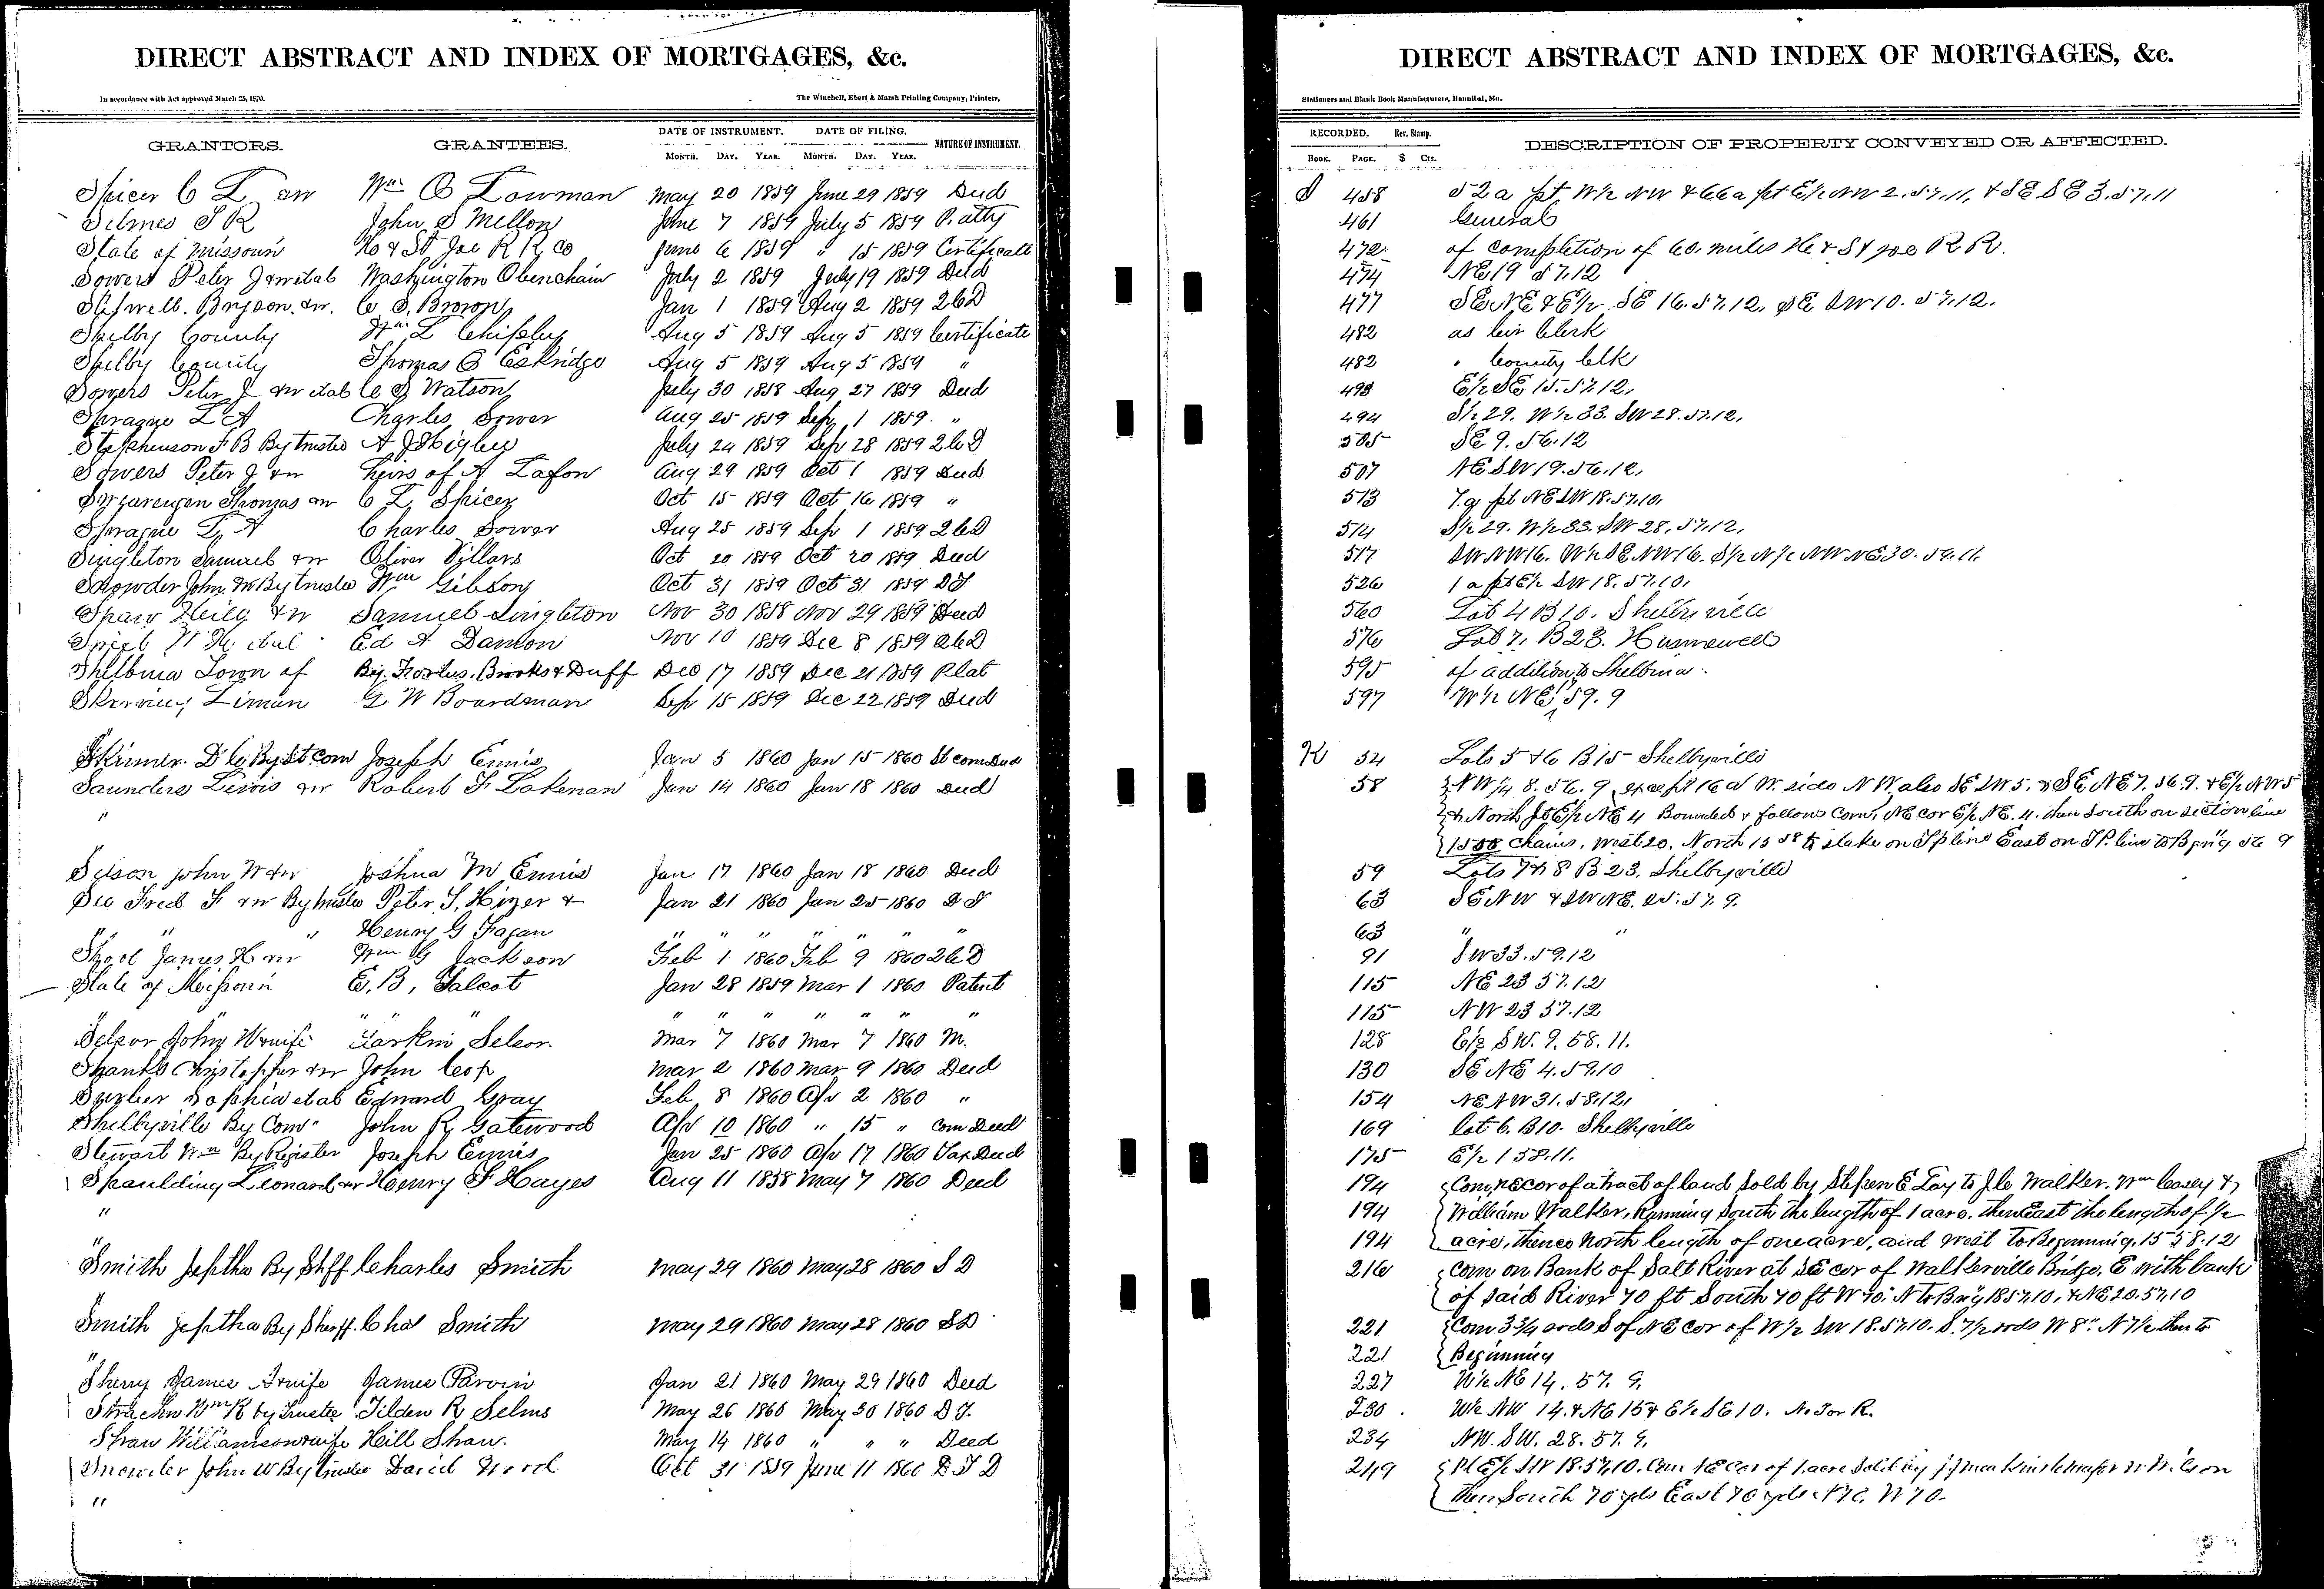 DIRECT ABSTRACT AND INDEX OF MORTGAGES, &c.
In accordance with Act approved March 25, 1870.
The Winchell, Ebert & Marsh Printing Company, Printers,
GRANTORS. GRANTEES. DATE OF INSTRUMENT. DATE OF FILING. NATURE OF INSTRUMENT.
MONTH. DAY. YEAR. MONTH. DAY. YEAR.
Spicer C L Wm O Lowman May 20 1859 June 29 1859 Deed
Selmes T R John S Mellon June 7 1859 July 5 1859 P. atty
State of Missouri H & St Joe R R Co June 6 1859 " 15 1859 Certificate
Sowers Peter J & wife et al Washington Obenchain July 2 1859 July 19 1859 Deed
Stilwell Brison & w. C S. Brown Jan 1 1859 Aug 2 1859 2 C D
Shelby County Wm L Chipley Aug 5 1859 Aug 5 1859 Certificate
Shelby County Thomas O Eskridge Aug 5 1859 Aug 5 1859 "
Sowers Peter J & w et al C S Watson July 30 1858 Aug 27 1859 Deed
Sprague L A Charles Sower Aug 25 1859 Sep 1 1859. "
Stephenson F B By trustee A J Higbee July 24 1859 Sep 28 1859 2 C D
Sowers Peter J & w Heirs of A Lafon Aug 29 1859 Oct 1 1859 Deed
Thomas & w C L Spicer Oct 15 1859 Oct 16 1859 "
Sprague L A Charles Sower Aug 25 1859 Sep 1 1859 2 C D
Singleton Samuel & w Oliver Villars Oct 20 1859 Oct 20 1859 Deed
Snowder John W By trustee Wm Gibson Oct 31 1859 Oct 31 1859 D T
Shaw & w Samuel Singleton Nov 30 1858 Nov 29 1859 Deed
et al Ed A Damon Nov 10 1859 Dec 8 1859 2 C D
Shelbina Town of By Fortus, Brooks & Duff Dec 17 1859 Dec 21 1859 Plat
Liman G W Boardman Sep 15 1859 Dec 22 1859 Deed
Skinner. D C By St com Joseph Ennis Jan 5 1860 Jan 15 1860 St com Deed
Saunders Lewis & w Robert F Lakenan Jan 14 1860 Jan 18 1860 Deed
"
Selsor John W & w Joshua M Ennis Jan 17 1860 Jan 18 1860 Deed
See Fred F & w By trustee Peter S. Hizer & Jan 21 1860 Jan 25 1860 D T
" " " Henry G Fagan " " " " " " "
Shoot James H & w Wm G Jackson Feb 1 1860 Feb 9 1860 2 C D
State of Missouri E. B. Talcot Jan 28 1859 Mar 1 1860 Patent
" " " " " " " " "
Selsor John W & wife Larkin Selsor. Mar 7 1860 Mar 7 1860 M.
Shanks Christopher & w John Cox Mar 2 1860 Mar 9 1860 Deed
Sophia et al Edward Gray Feb 8 1860 Apr 2 1860 "
Shelbyville By Comr John R Gatewood Apr 10 1860 " 15 " com Deed
Stewart Wm By Register Joseph Ennis Jan 25 1860 Apr 17 1860 Tax Deed
Spaulding Leonard & w Henry S Hayes Aug 11 1858 May 7 1860 Deed
"
Smith Jeptha By Shff Charles Smith May 29 1860 May 28 1860 S D
Smith Jeptha By Sheff. Chas Smith May 29 1860 May 28 1860 S D
"
Sherry James & wife James Parvin Jan 21 1860 May 29 1860 Deed
Strachn Wm R by Trustee Tilden R Selms May 26 1860 May 30 1860 D T.
Shaw Williamson & wife Hill Shaw. May 14 1860 " " " Deed
Snowder John W By trustee David Wood Oct 31 1859 June 11 1860 D T D
"
DIRECT ABSTRACT AND INDEX OF MORTGAGES, &c.
Stationers and Blank Book Manufacturers, Hannibal, Mo.
RECORDED. Rev. Stamp. DESCRIPTION OF PROPERTY CONVEYED OR AFFECTED.
BOOK. PAGE. $ Cts.
458 52 a pt W½ NW & 66 a pt E½ NW 2. 57. 11, & SE SE 3. 57. 11
461 General
472 of completion of 60. miles H & St Joe R R.
474 NE 19 57. 12
477 SE NE & E½ SE 16. 57. 12, SE SW 10. 57. 12.
482 as Cir Clerk
482 " County Clk
493 E½ SE 15. 57. 12.
494 S½ 29. W½ 33. SW 28. 57. 12.
505 SE 9. 56. 12
507 NE SW 19. 56. 12.
513 7 a pt NE SW 18. 57. 10.
514 S½ 29. W½ 33. SW 28. 57. 12.
517 SW NW 16. W½ SE NW 16. S½ N½ NW NE 30. 59. 11.
526 1 a pt E½ SW 18. 57. 10.
560 Lot 4 B 10. Shelbyville
576 Lot 7, B 23. Hunnewell
595 of addition to Shelbina.
597 W½ NE 59. 9
K 54 Lots 5 & 6 B 15 Shelbyville
58 NW ¼ 8. 56. 9 except 16 a W. side NW also SE SW 5. & SE NE 7. 56. 9. & E½ NW 5
& North pt E½ NE 4 Bounded & follows Com. NE cor E½ NE. 4. then South on section line
1588 chains, West 20. North 15 58 to stake on Tp line East on TP. line to Bgng 56 9
59 Lots 7 & 8 B 23. Shelbyville
63 SE NW & SW NE. 25. 57. 9.
63 " "
91 SW 33. 59. 12
115 NE 23 57. 12
115 NW 23 57. 12
128 E½ SW. 9. 58. 11.
130 SE NE 4. 59 10
154 NE NW 31. 58. 12.
169 Lot 6. B 10. Shelbyville
175 E½ 1 58. 11.
194 Com NE cor of a tract of land sold by Stephen E Lay to J C Walker. Wm Casey &
194 William Walker, Running South the length of 1 acre. then East the length of ½
194 acre, thence North length of one acre, and West to Beginning. 15 58. 12
216 Com on Bank of Salt River at SE cor of Walkerville Bridge, E with bank
of said River 70 ft South 70 ft W 70. N to Bng 18 57. 10, & NE 20. 57. 10
221 Com 3¾ rods S of NE cor of W½ SW 18. 57. 10. S. 7½ rods W 8" N 7½ then to
221 Beginning
227 W½ NE 14. 57. 9.
230 W½ NW 14. & NE 15 & E½ SE 10. No T or R.
234 NW. SW. 28. 57. 9.
249 Pt E½ SW 18. 57. 10. Com SE cor of 1 acre sold by
then South 70 yds East 70 yds N 70. W 70.